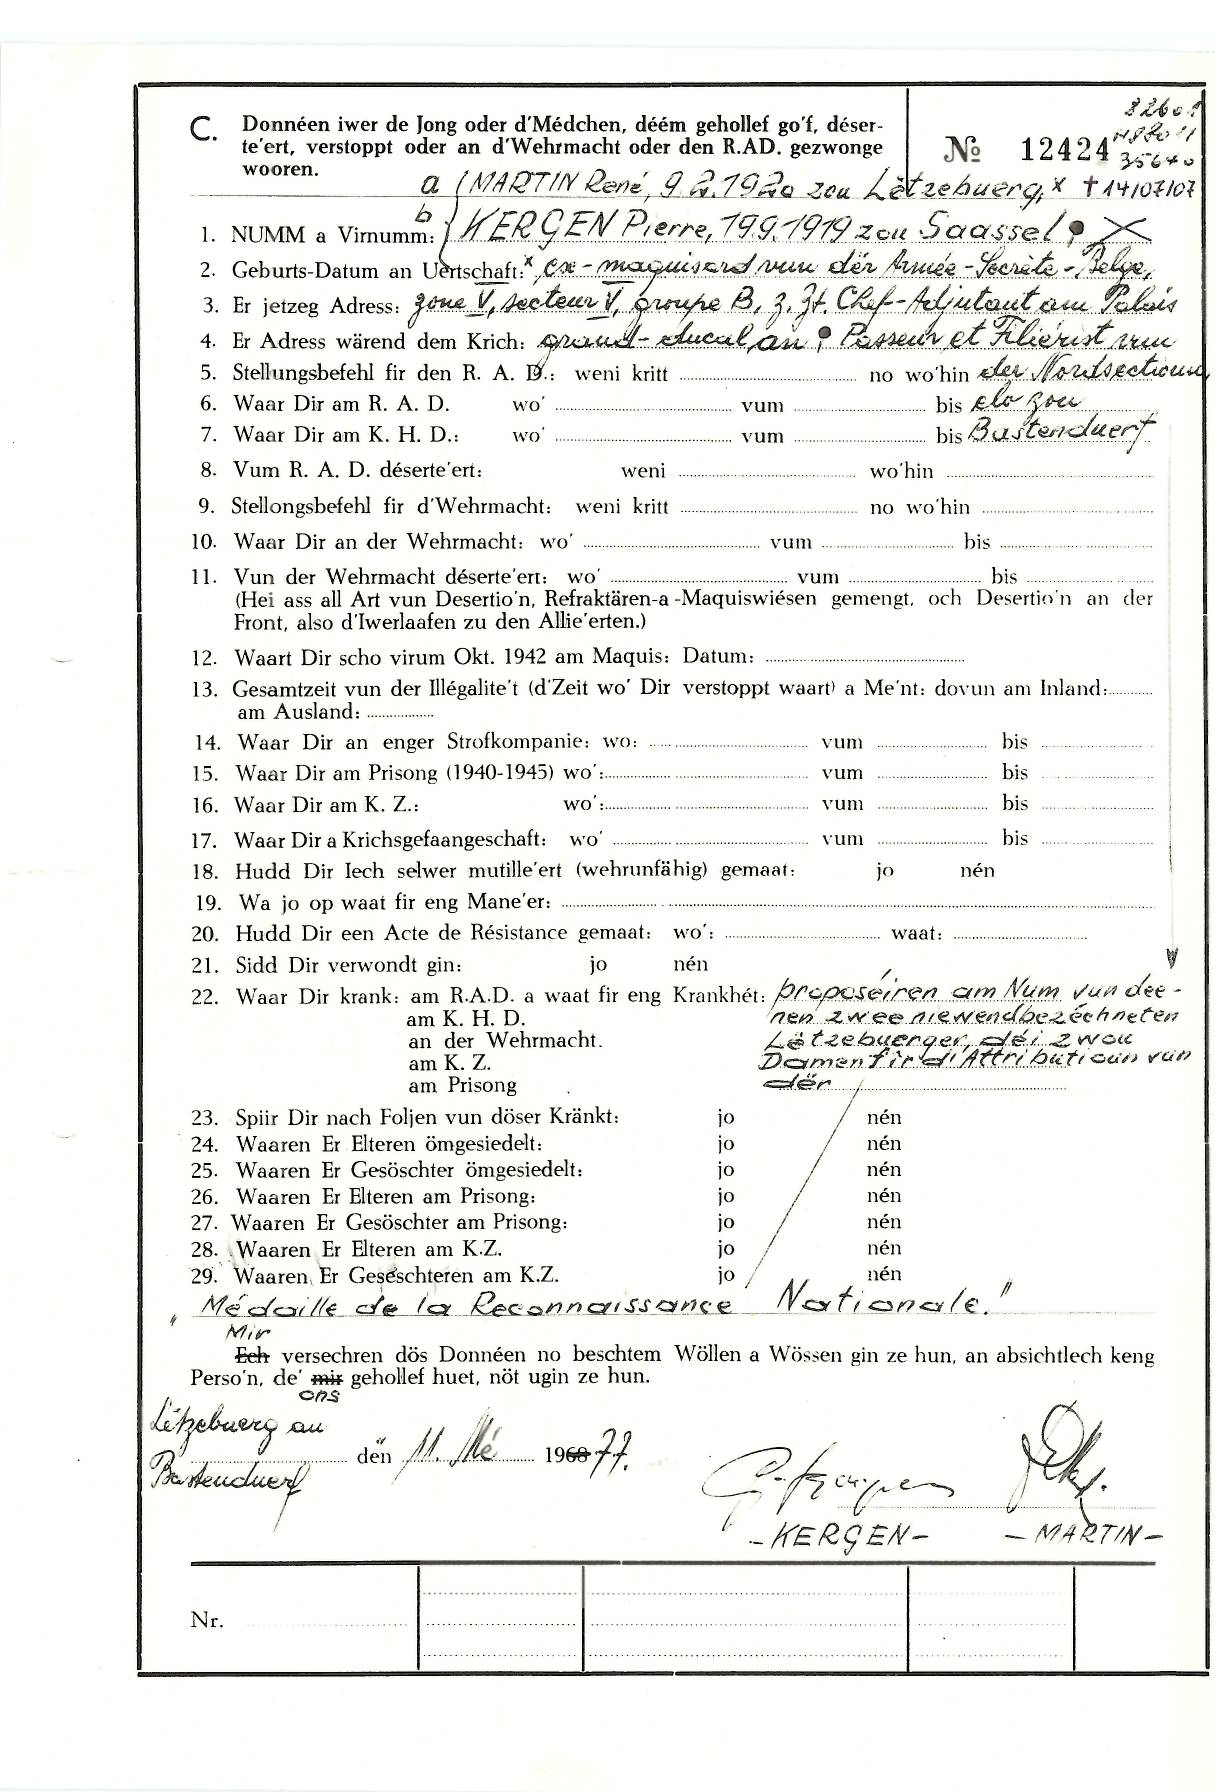 C. Donnéen iwer de Jong oder d'Médchen, déém gehollef go'f, déser-
te'ert, verstoppt oder an d'Wehrmacht oder den R.AD. gezwonge
wooren.
№ 12424
35640
a (MARTIN René, 9.2.1920 zou Lëtzebuerg,x † 14/07/07
1. NUMM a Virnumm: b KERGEN Pierre, 19.9.1919 zou Saassel
2. Geburts-Datum an Uertschaft: x ex-maquisard vun dër Armée-Secrète-Belge,
3. Er jetzeg Adress: zone V, secteur V, groupe B, z. Zt. Chef-Adjutant am Palais
4. Er Adress wärend dem Krich: grand-ducal, an: Passeur et Filiérist vun
5. Stellungsbefehl fir den R. A. D.: weni kritt no wo'hin der Nordsectioun
6. Waar Dir am R. A. D. wo' vum bis elo zou
7. Waar Dir am K. H. D.: wo' vum bis Bastenduerf
8. Vum R. A. D. déserte'ert: weni wo'hin
9. Stellongsbefehl fir d'Wehrmacht: weni kritt no wo'hin
10. Waar Dir an der Wehrmacht: wo' vum bis
11. Vun der Wehrmacht déserte'ert: wo' vum bis
(Hei ass all Art vun Desertio'n, Refraktären-a -Maquiswiésen gemengt, och Desertio'n an der
Front, also d'Iwerlaafen zu den Allie'erten.)
12. Waart Dir scho virum Okt. 1942 am Maquis: Datum:
13. Gesamtzeit vun der Illégalite't (d'Zeit wo' Dir verstoppt waart) a Me'nt: dovun am Inland:
am Ausland:
14. Waar Dir an enger Strofkompanie: wo: vum bis
15. Waar Dir am Prisong (1940-1945) wo': vum bis
16. Waar Dir am K. Z.: wo': vum bis
17. Waar Dir a Krichsgefaangeschaft: wo' vum bis
18. Hudd Dir Iech selwer mutille'ert (wehrunfähig) gemaat: jo nén
19. Wa jo op waat fir eng Mane'er:
20. Hudd Dir een Acte de Résistance gemaat: wo': waat:
21. Sidd Dir verwondt gin: jo nén
22. Waar Dir krank: am R.A.D. a waat fir eng Krankhét: proposéiren am Num vun dee-
am K. H. D. nen zwee niewendbezéchneten
an der Wehrmacht. Lëtzebuerger, déi zwou
am K. Z. Damen fir d'Attributioun vun
am Prisong dër
23. Spiir Dir nach Foljen vun döser Kränkt: jo nén
24. Waaren Er Elteren ömgesiedelt: jo nén
25. Waaren Er Gesöschter ömgesiedelt: jo nén
26. Waaren Er Elteren am Prisong: jo nén
27. Waaren Er Gesöschter am Prisong: jo nén
28. Waaren Er Elteren am K.Z. jo nén
29. Waaren Er Geseschteren am K.Z. jo nén
"Médaille de la Reconnaissance Nationale."
Mir
Ech versechren dös Donnéen no beschtem Wöllen a Wössen gin ze hun, an absichtlech keng
Perso'n, de' mir gehollef huet, nöt ugin ze hun.
ons
Lëtzebuerg an
den 11. Mé 196877.
Bastenduerf
-KERGEN- -MARTIN-
Nr.